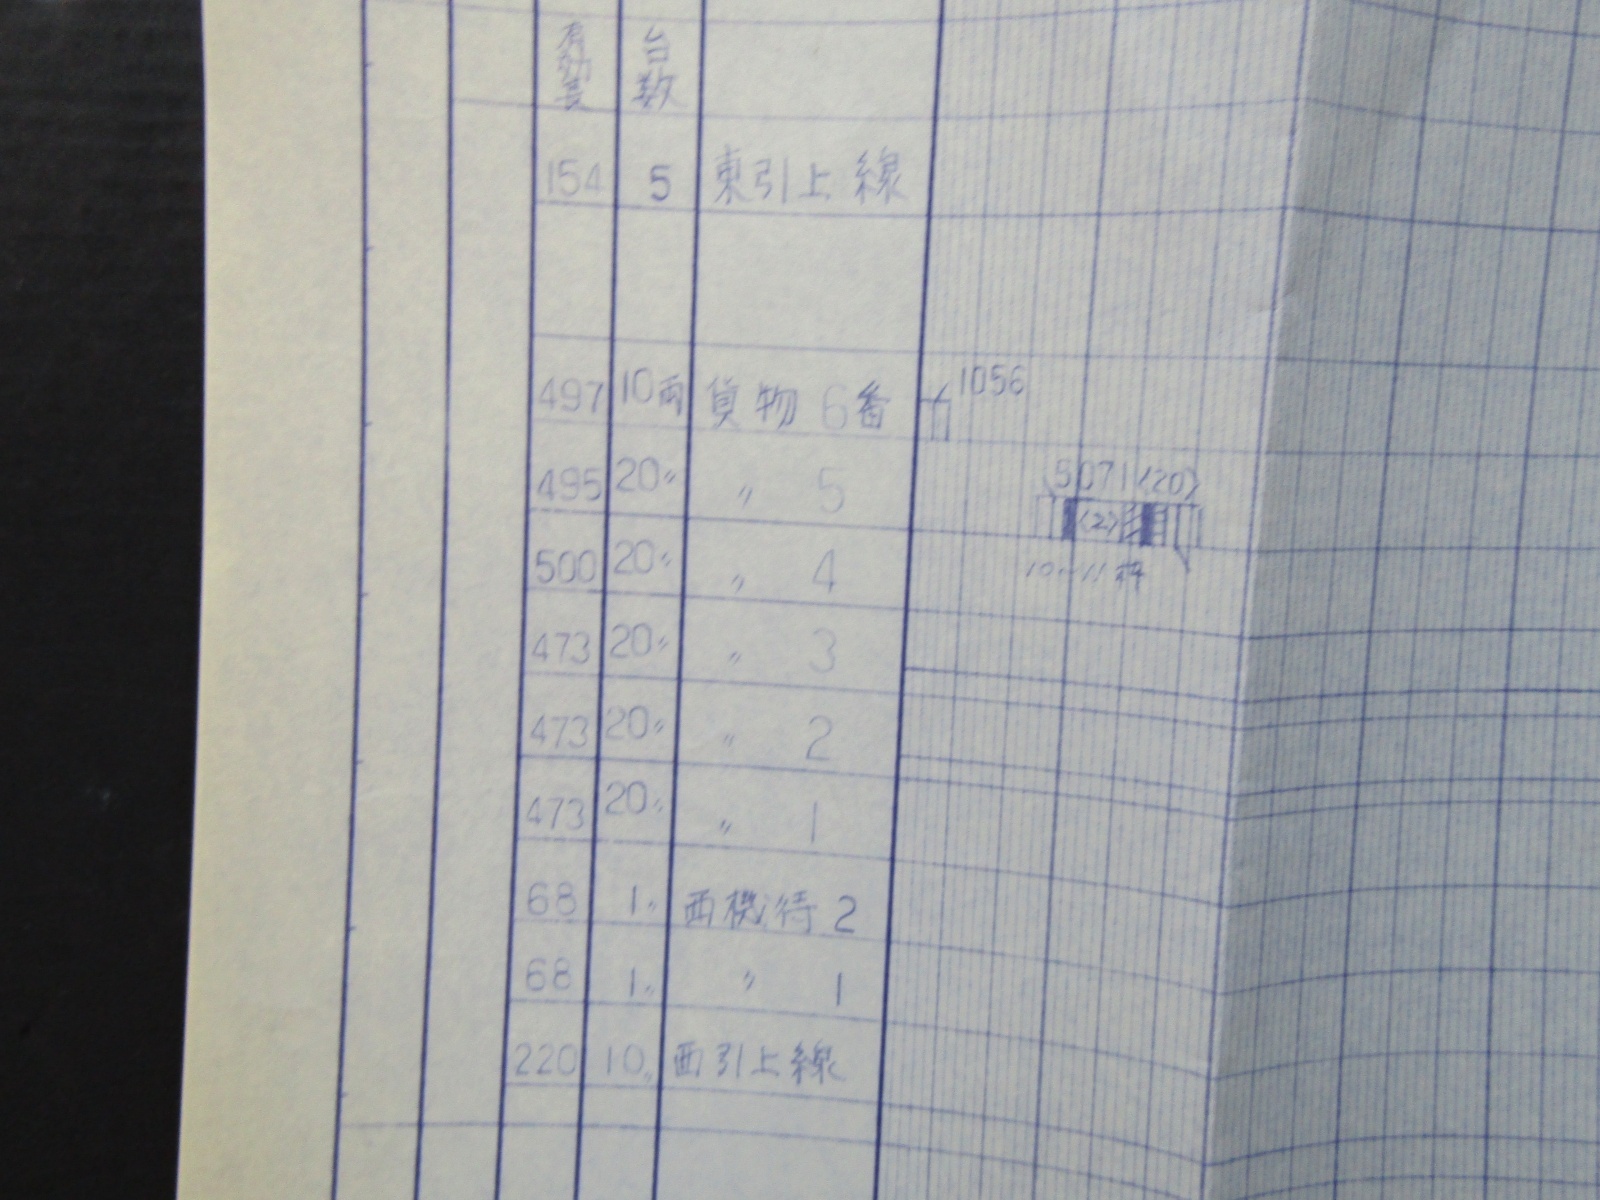 有効長 台数
154 5 東引上線
497 10両 貨物 6番 1056
495 20〃 〃 5 5071〈20〉
〈2〉
500 20〃 〃 4 10~11枠
473 20〃 〃 3
473 20〃 〃 2
473 20〃 〃 1
68 1〃 西機待 2
68 1〃 〃 1
220 10〃 西引上線